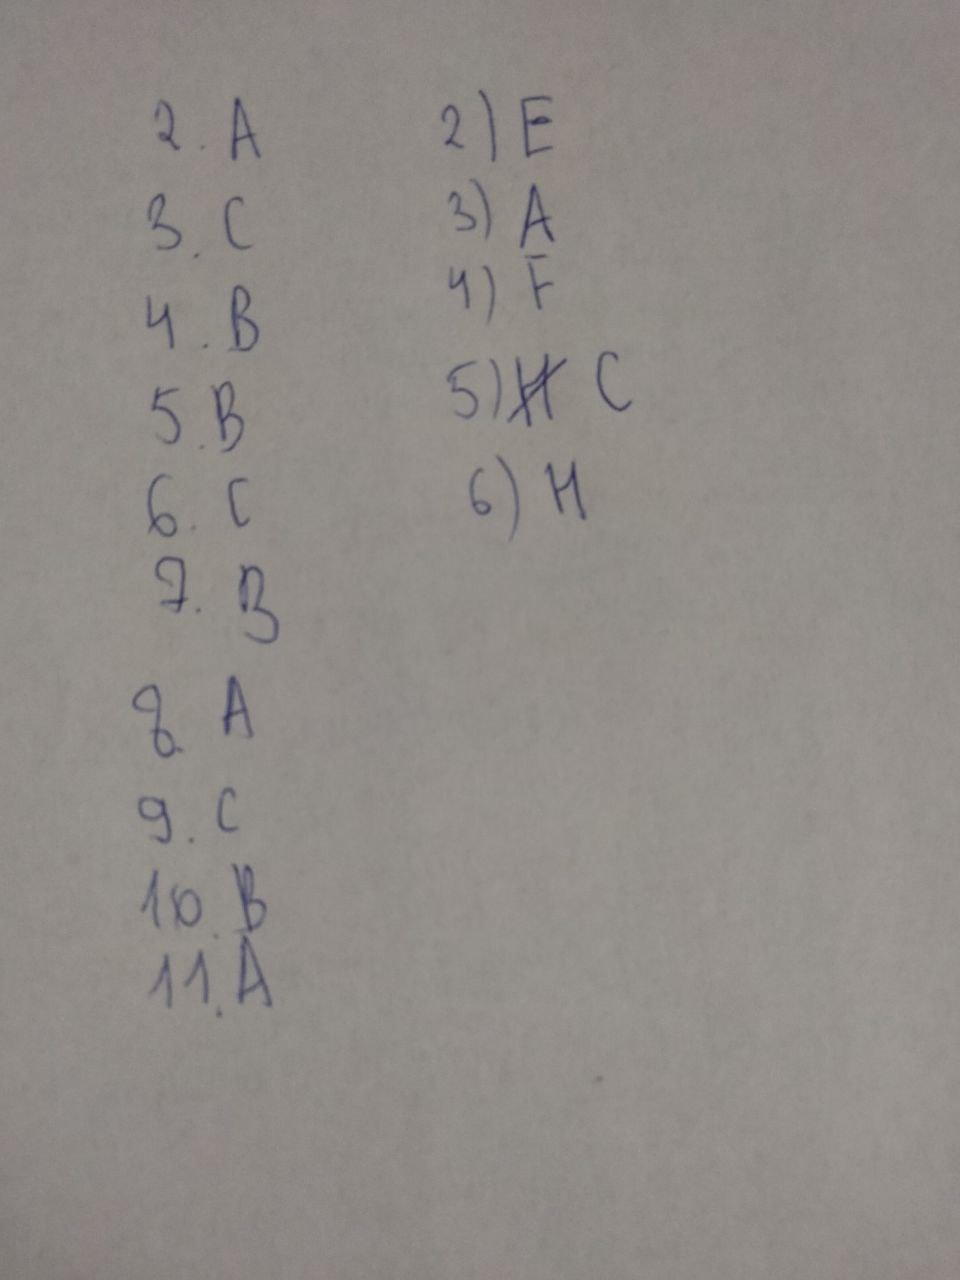 2. A
3. C
4. B
5. B
6. C
7. B
8. A
9. C
10. B
11. A
2) E
3) A
4) F
5) H C
6) H